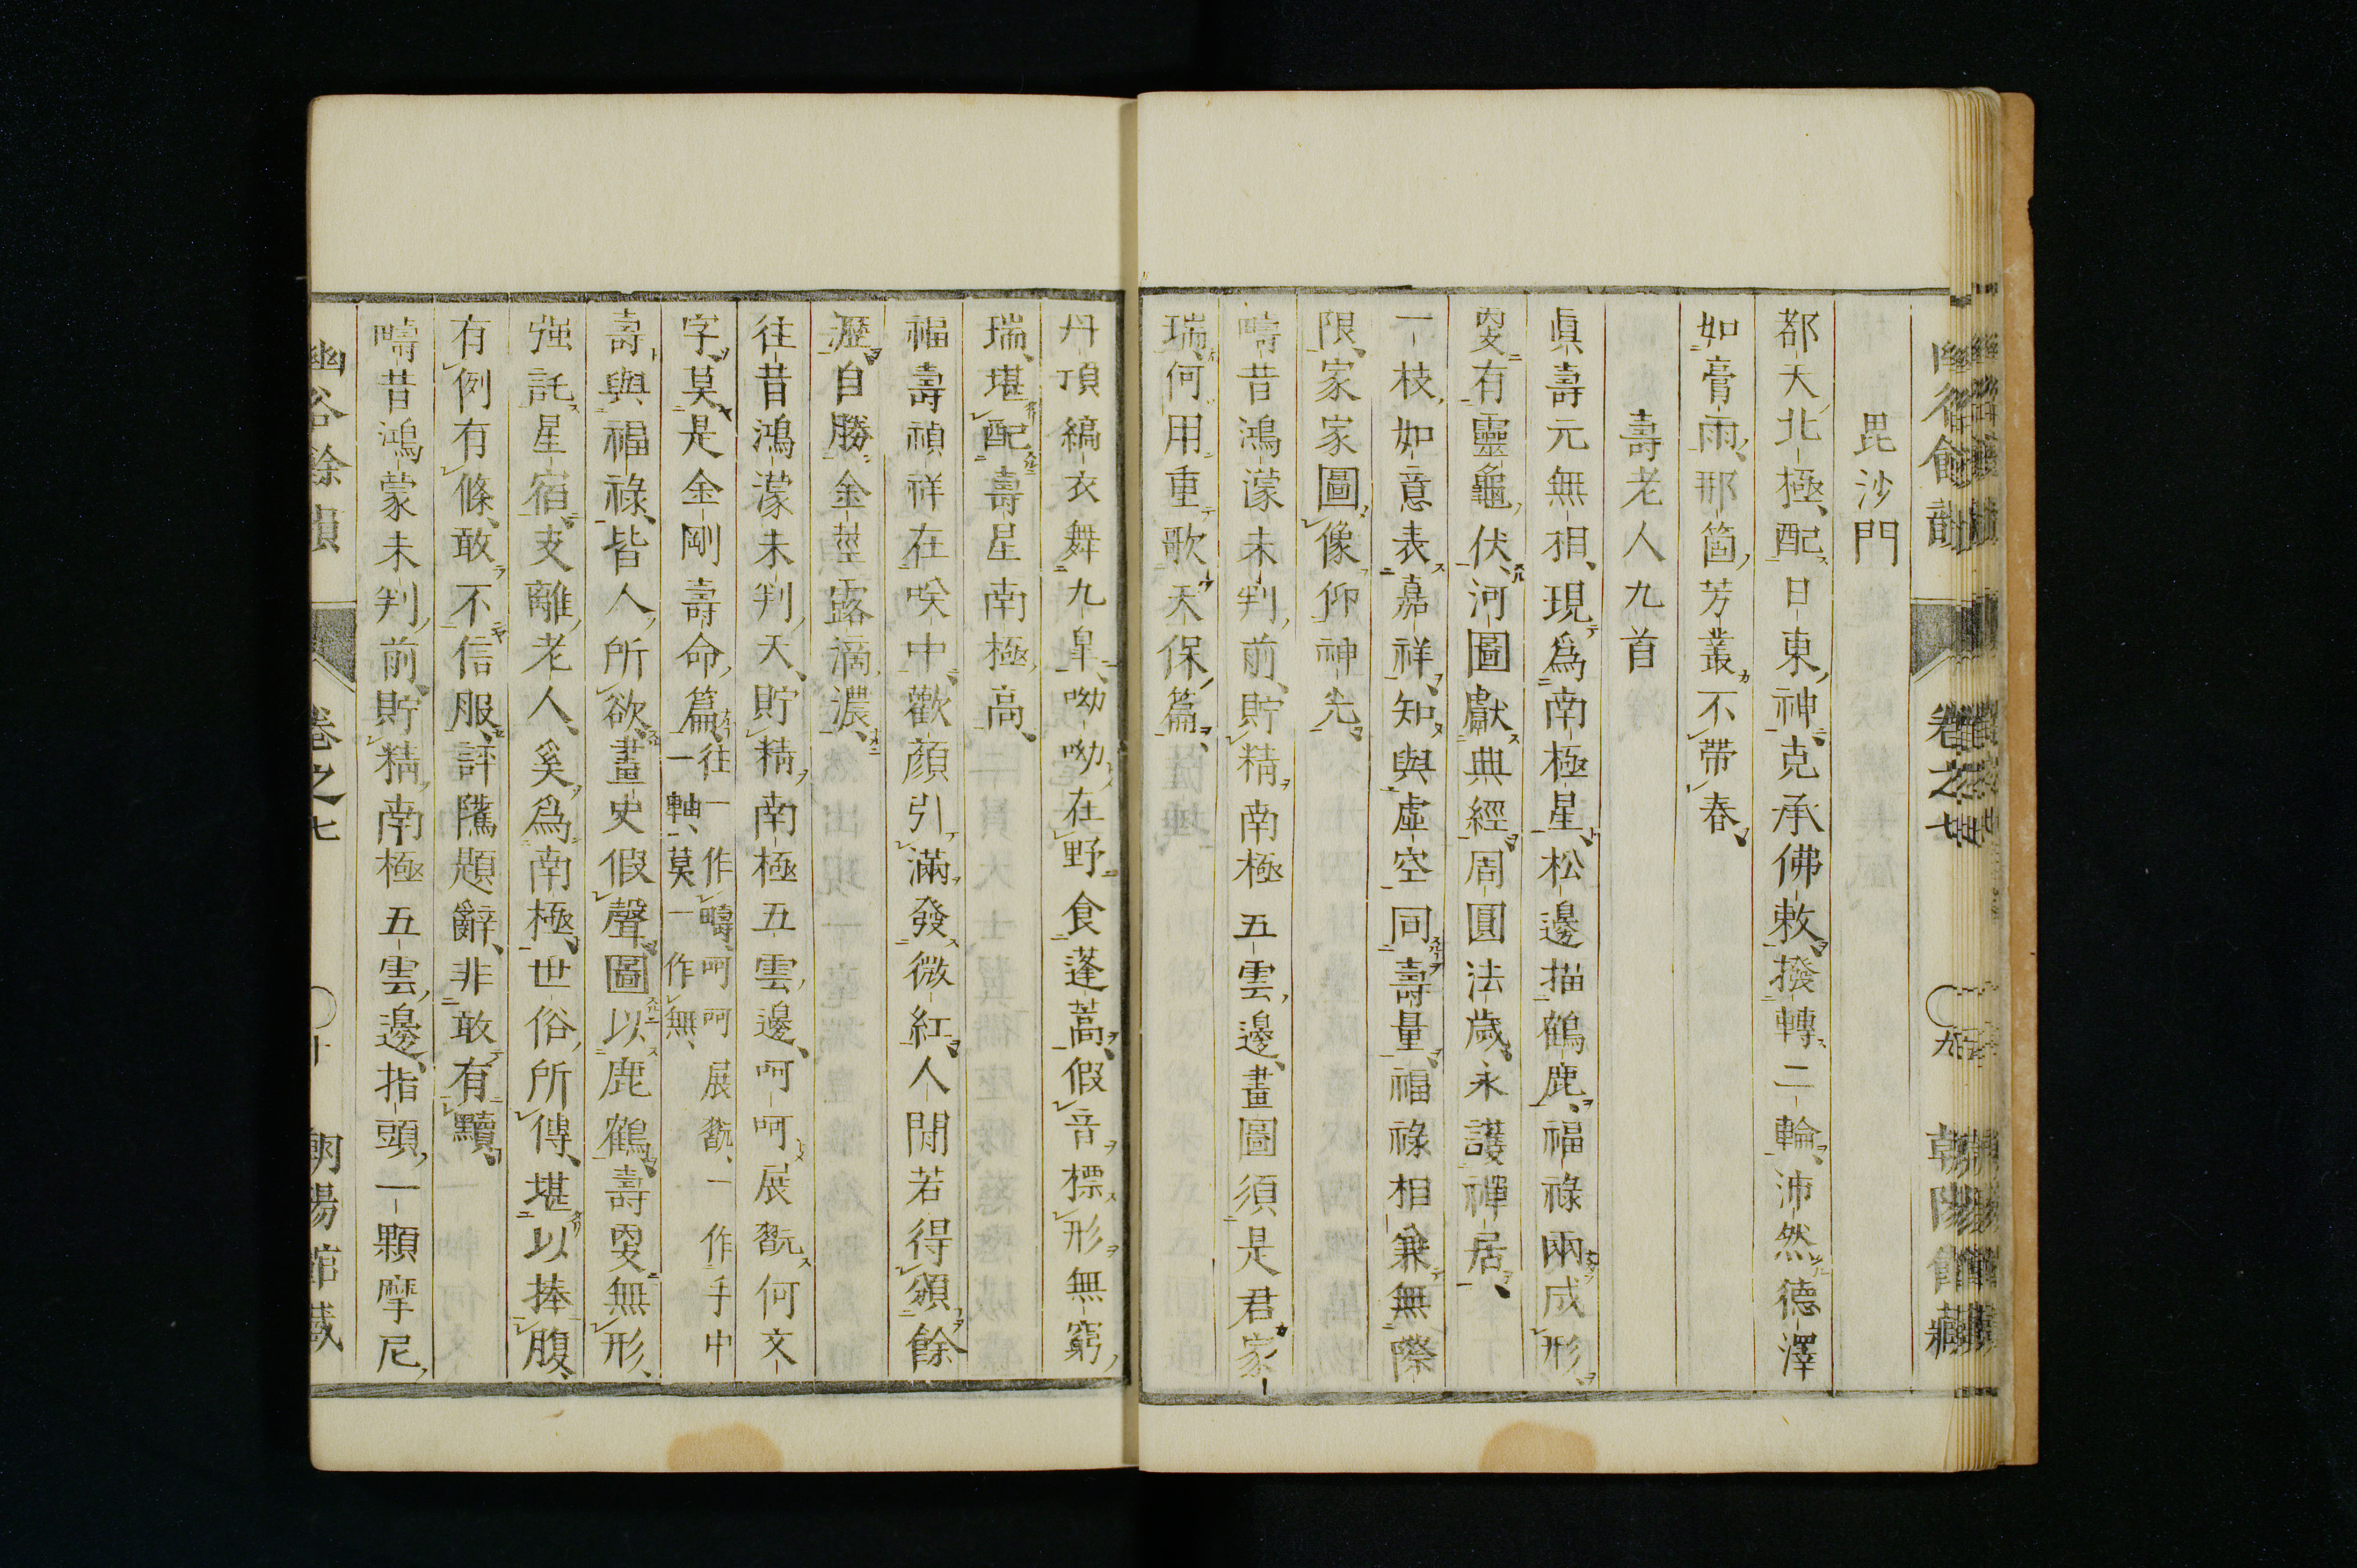 毘沙門
都天北極配日東神克承佛敕撥轉二輪沛然德澤
如膏雨那箇芳叢不帶春
壽老人九首
眞壽元無相現爲南極星松邊描鶴鹿福祿兩成形
有靈龜伏河圖獻典經周圓法歲永護禪居
一枝如意表嘉祥知與虛空同壽量福祿相兼無際
限家家圖像仰神光
疇昔鴻濛未判前貯精南極五雲邊畫圖須是君家
瑞何用重歌天保篇
丹頂縞衣舞九皐呦呦在野食蓬蒿假音標形無窮
瑞堪配壽星南極高
福壽禎祥在咲中歡顏引滿發微紅人間若得頒餘
瀝自勝金莖露滴濃
往昔鴻濛未判天貯精南極五雲邊呵呵展翫何文
字莫是金剛壽命篇往一作疇呵呵展翫一作手中
一軸莫一作無
壽與福祿皆人所欲畫史假聲圖以鹿鶴壽叟無形
强託星宿支離老人奚爲南極世俗所傳堪以捧腹
有例有條敢不信服評隲題辭非敢有黷
疇昔鴻蒙未判前貯精南極五雲邊指頭一顆摩尼
幽谷餘韻
卷之七
十
朝陽館藏